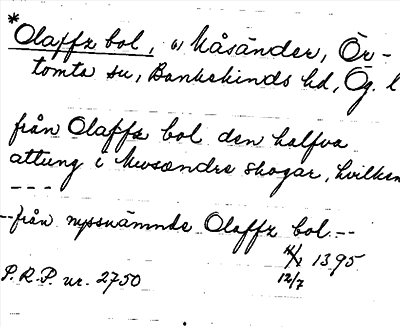 *Olaffz bol, i Måsänder, Ör-
tomta sn, Bankekinds hd, Ög. l
från Olaffz bol den halfva
attung i Mwsændre skogar, hvilken
---
--från nyssnämnde Olaffz bol.--
1395
12/7
P.R.P. nr. 2750